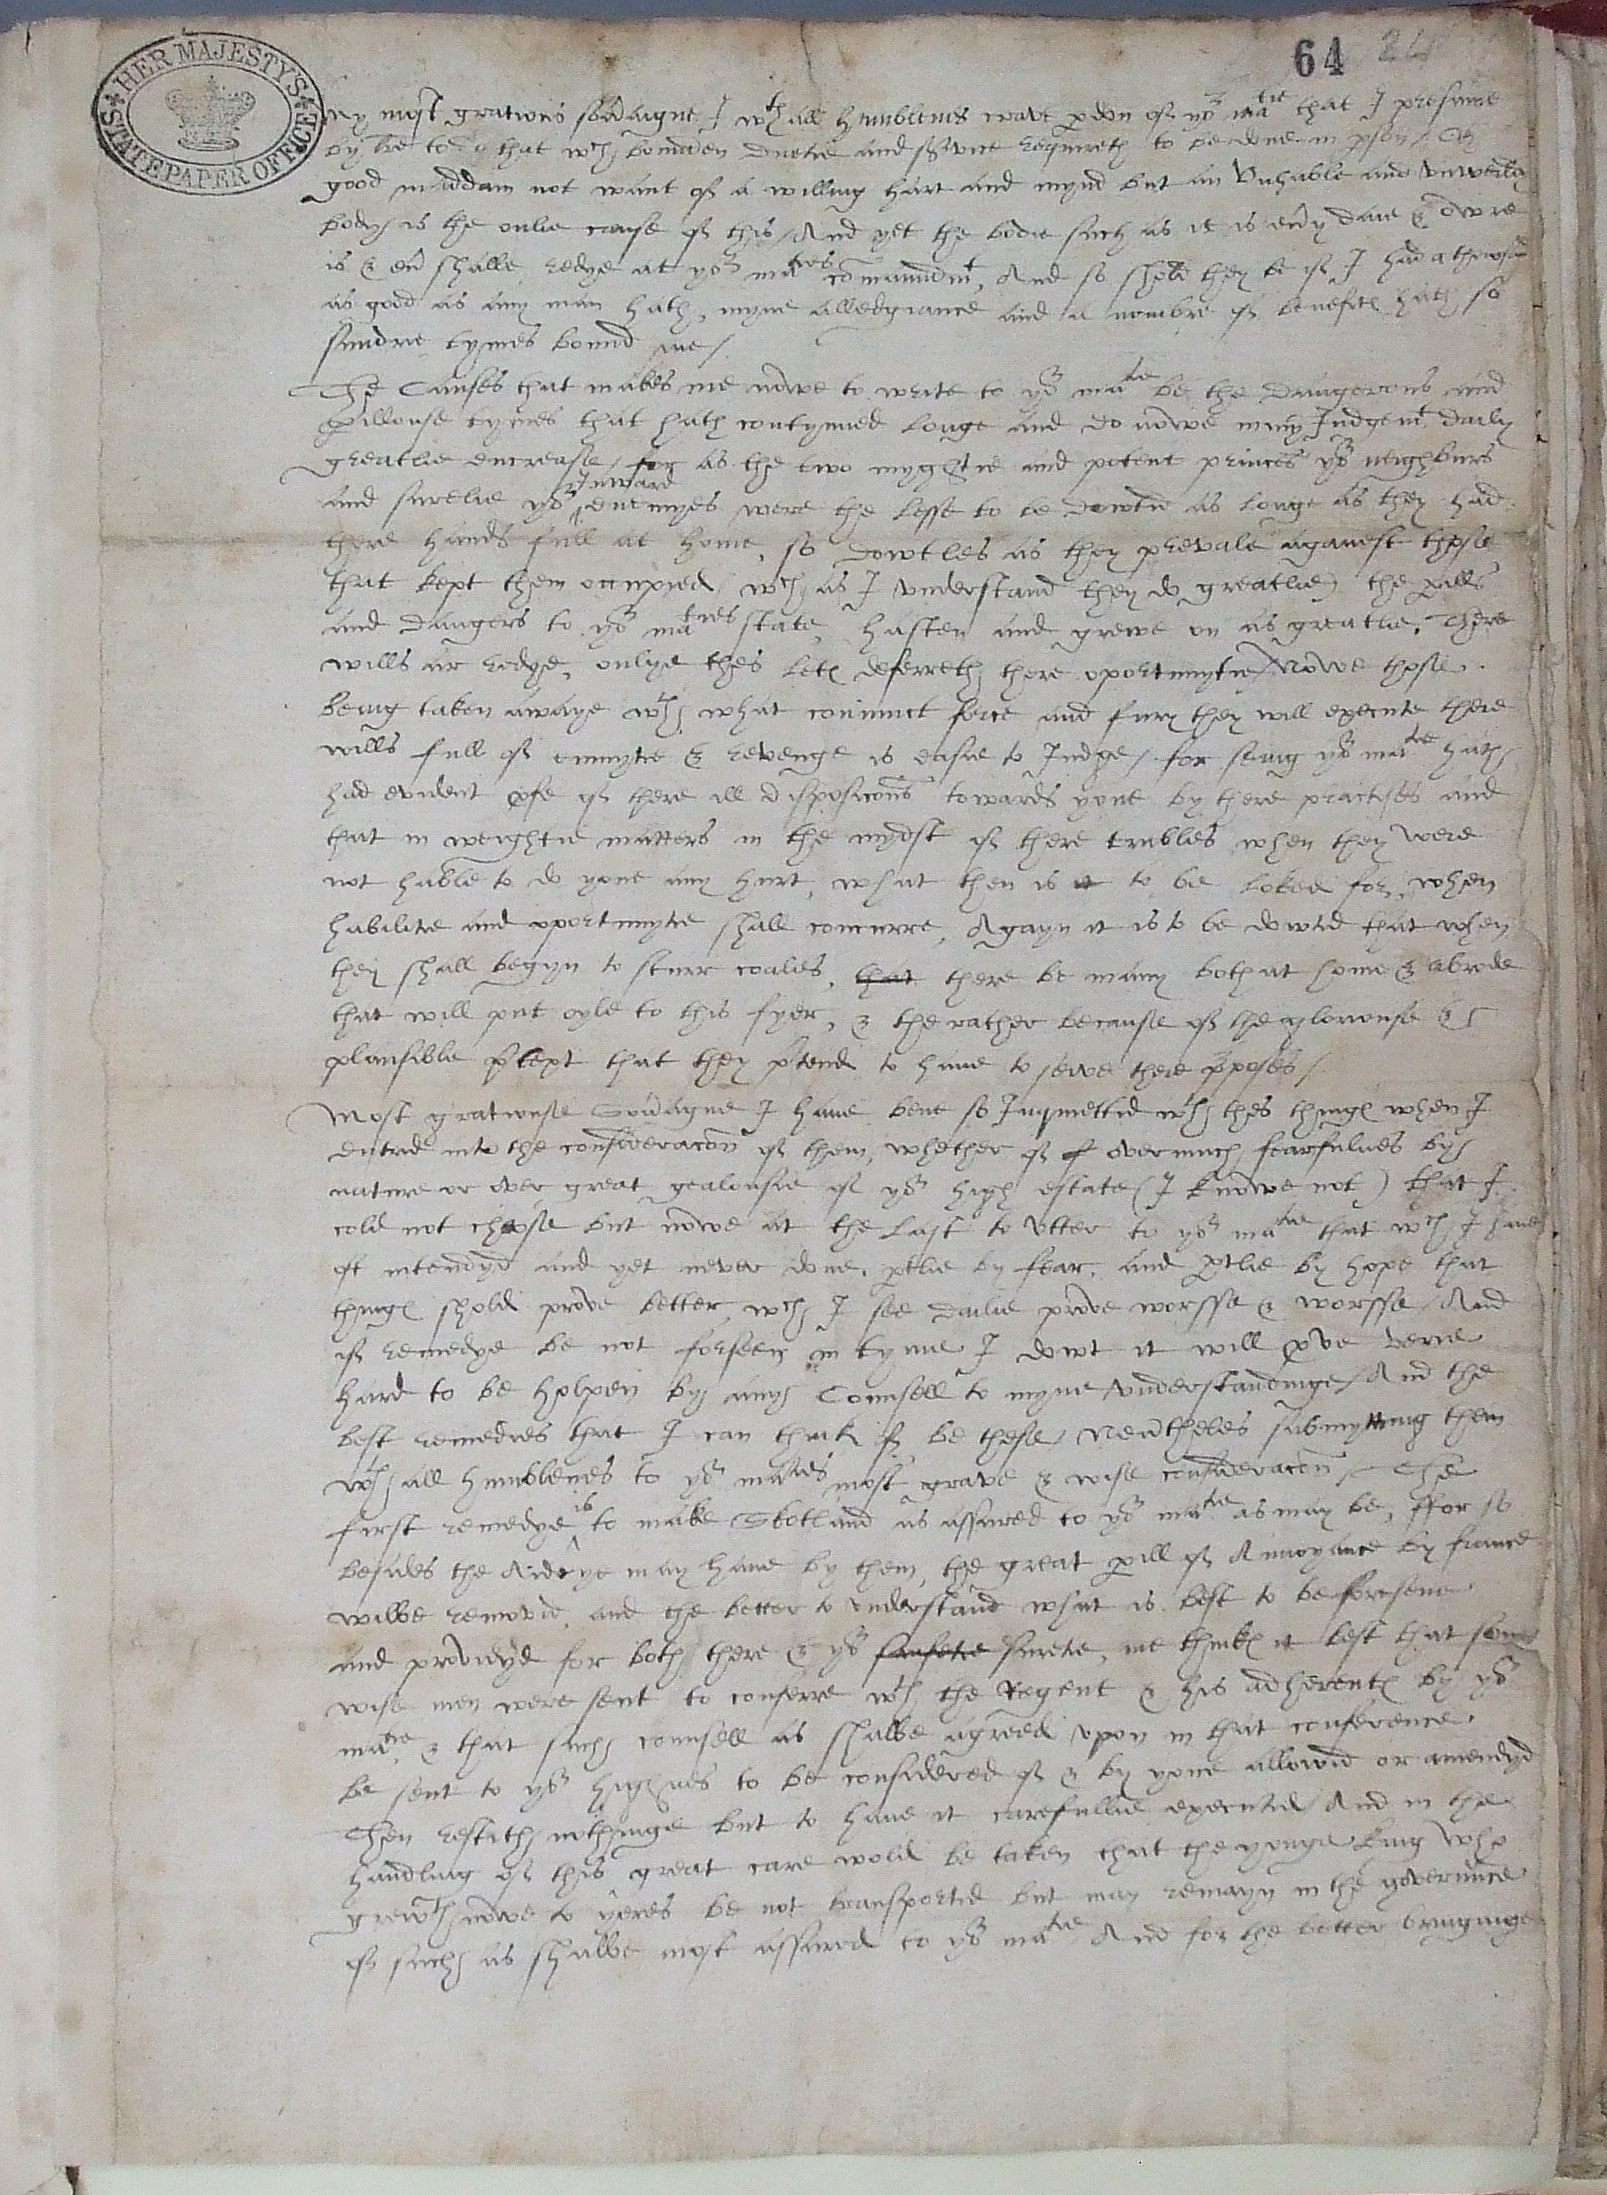 64 24
HER MAJESTY'S STATE PAPER OFFICE
My most gratious sovaigne, I wth all humblenes crave pdon of yor matie that I presume
by lre to do that wch bounden duetie and service requireth to be done in pson. Oh
good maddam not want of a willing hart and mynd but an unhable and unweildy
body is the onlie cause of this / And yet the bodie such as it is evy daie & owre
is & ev shalbe redye at yor maties comaundmt, And so shold they be if I had a thowsand
as good as any man hath, myne alledgiance and a nombre of benefits hath so
sundrie tymes bound me /
The Causes that makes me nowe to write to yor matie be the daungerous and
pillouse tymes that hath contynued longe and do nowe in my Judgemt daily
greatlie encrease, for as the two myghtie and potent princes yor neighburs
and surelie yor inward enemyes were the lesse to be dowtid as longe as they had
there hands full at home, so dowtles as they prevale against those
that kept them occupied (wch as I understand they do greatlie) the pills
and daungers to yor maties state, hasten and growe on as greatlie. There
wills ar redye, onlye thes lets deferreth there oportunytie / Nowe those
being taken awaye wth what coniunct force and fury they will execute there
wills full of enmytie & revenge is easie to Judge / for seing yor matie hath
had evident pfe of there ill disposicons towards youe by there practises and
that in weightie matters in the mydst of there trubles when they were
not hable to do youe any hurt, what then is it to be loked for, when
habilitie and oportunytie shall concurre, Agayn it is to be dowtid that when
they shall begyn to sturr coales, that there be many both at home & abrode
that will put oyle to this fyer, & the rather because of the glorouse &
plausible ptext that they ptend to have to serve there pposes /
Most gratiouse Sovaigne I have bene so Inquiettid wth thes things when I
entrid into the consideracon of them, whether of overmuch fearfulnes by
nature or over great gealousie of yor high estate (I knowe not) that I
cold not chose but nowe at the last to utter to yor matie that wch I have
oft intendyd and yet never done, ptlie by fear, and ptlie by hope that
things shold prove better, wch I see dailie prove worsse & worsse / And
if remedye be not forseen in tyme I dowt it will pve verie
hard to be holpen by any Counsell to myne understandinge / And the
best remedies that I can think of be these / Nevtheles submytting them
wth all humblenes to yor maties most grave & wise consideracon / The
first remedye is to make Skotland as assured to yor matie as may be, ffor so
besides the Aide ye may have by them, the great pill of Annoyance by france
wilbe removid, and the better to understand what is best to be foresene
and providyd for both there & yor saufetie suretie, me thinks it best that some
wise men were sent to conferre wth the Regent & his adherents by yor
matie & that such counsell as shalbe agreed upon in that conference
be sent to yor highnes to be considered of & by youe allowid or amendyd
Then restith nothinge but to have it carefullie executid / And in the
handling of this great care wold be taken that the yonge king who
growth nowe to yeres be not transportid but may remayn in the governnce
of such as shalbe most assured to yor matie And for the better bringinge